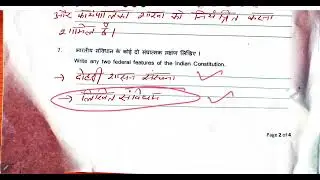 और कार्यपालिका शाखा को नियंत्रित करना
शामिल है।
7. भारतीय संविधान के कोई दो संघात्मक लक्षण लिखिए ।
Write any two federal features of the Indian Constitution.
→ दोहरी शासन संरचना
→ लिखित संविधान
Page 2 of 4